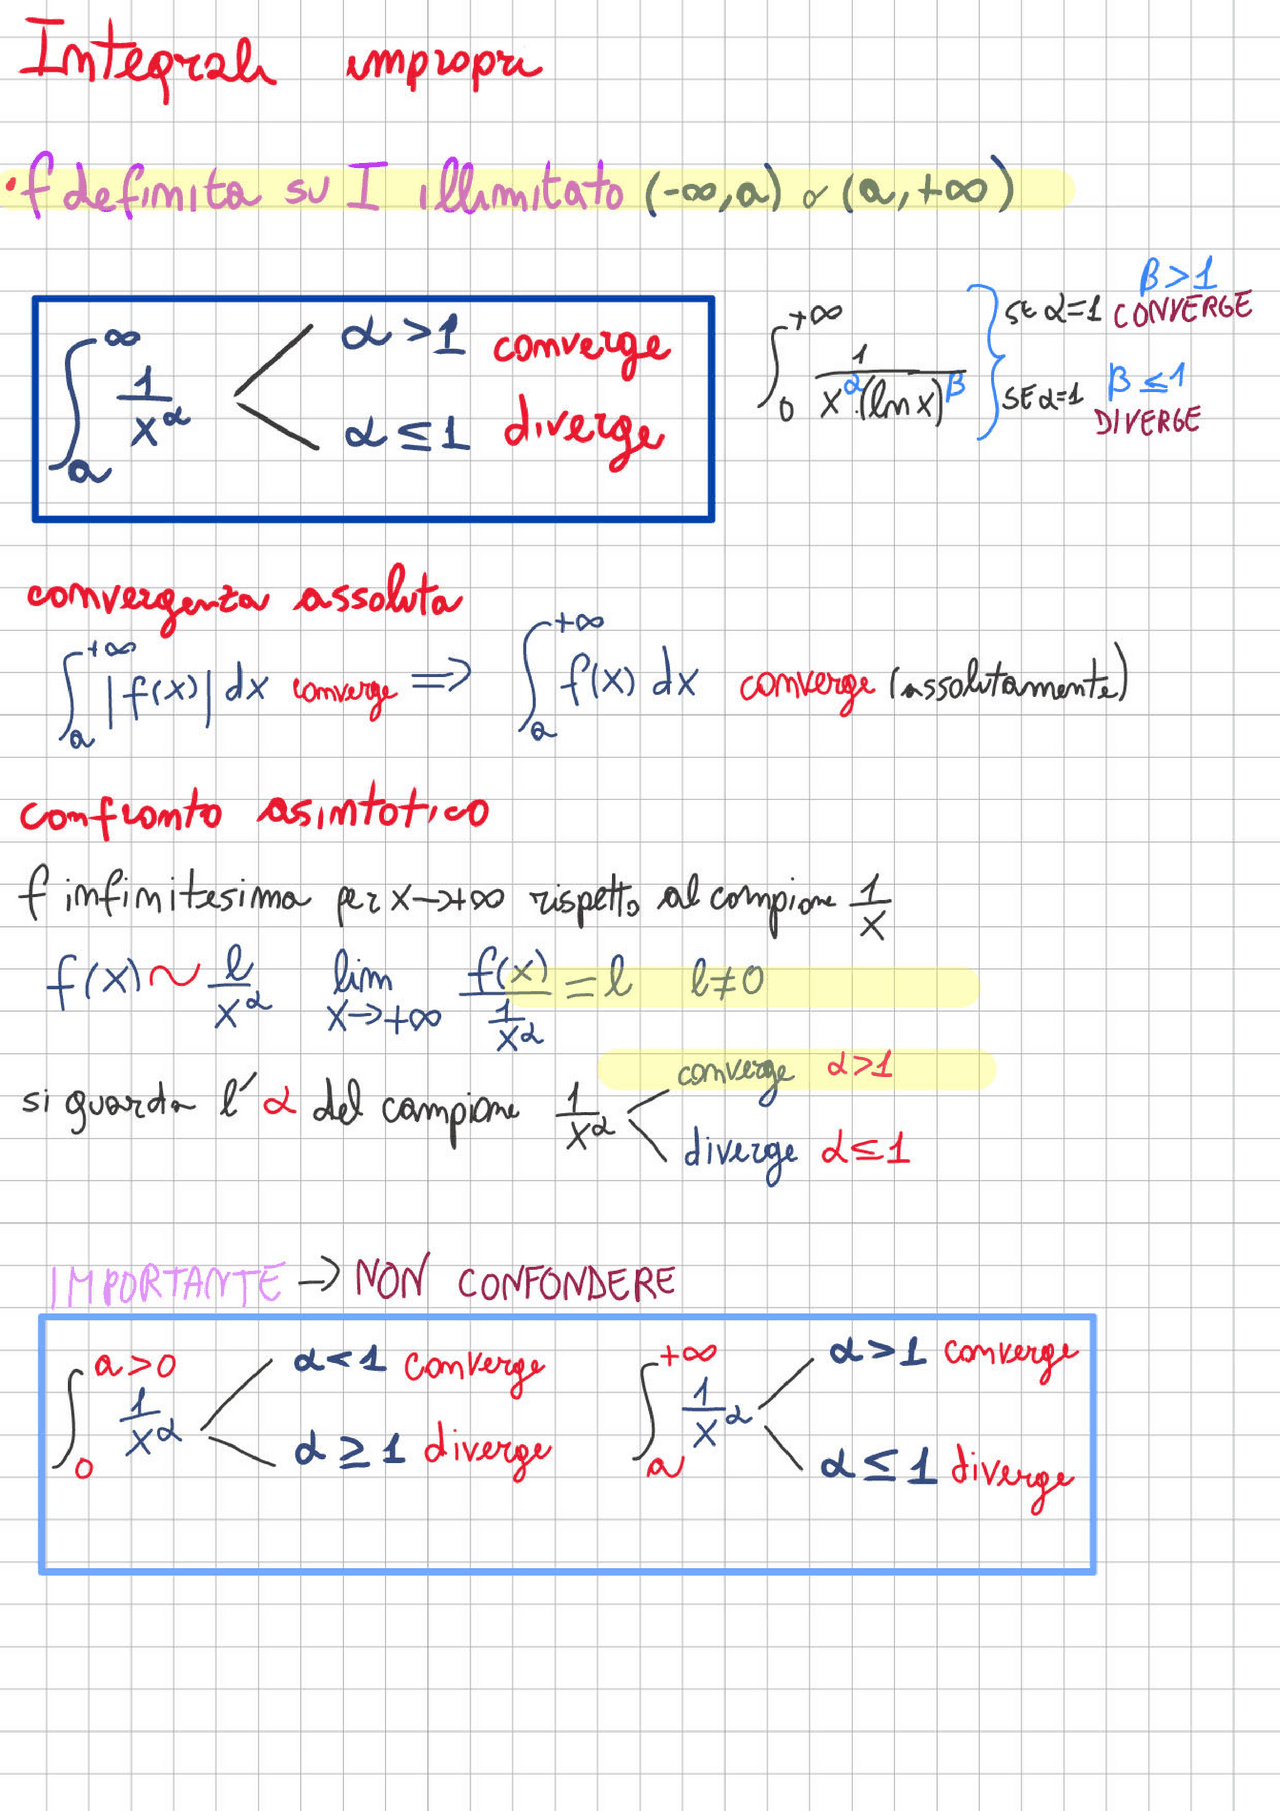 Integrali impropri
• f definita su I illimitato (-∞,a) o (a,+∞)
∫_a^∞ 1/x^α < α>1 converge
α≤1 diverge
∫_0^{+∞} 1/(x^α·(ln x)^β) } SE α=1 β>1 CONVERGE
SE α=1 β≤1 DIVERGE
convergenza assoluta
∫_a^{+∞} |f(x)| dx converge ⇒ ∫_a^{+∞} f(x) dx converge (assolutamente)
confronto asintotico
f infinitesima per x→+∞ rispetto al campione 1/x
f(x) ~ l/x^α lim_{x→+∞} f(x)/(1/x^α) = l l≠0
si guarda l'α del campione 1/x^α < converge α>1
diverge α≤1
IMPORTANTE → NON CONFONDERE
∫_0^{a>0} 1/x^α < α<1 converge
α≥1 diverge
∫_a^{+∞} 1/x^α < α>1 converge
α≤1 diverge